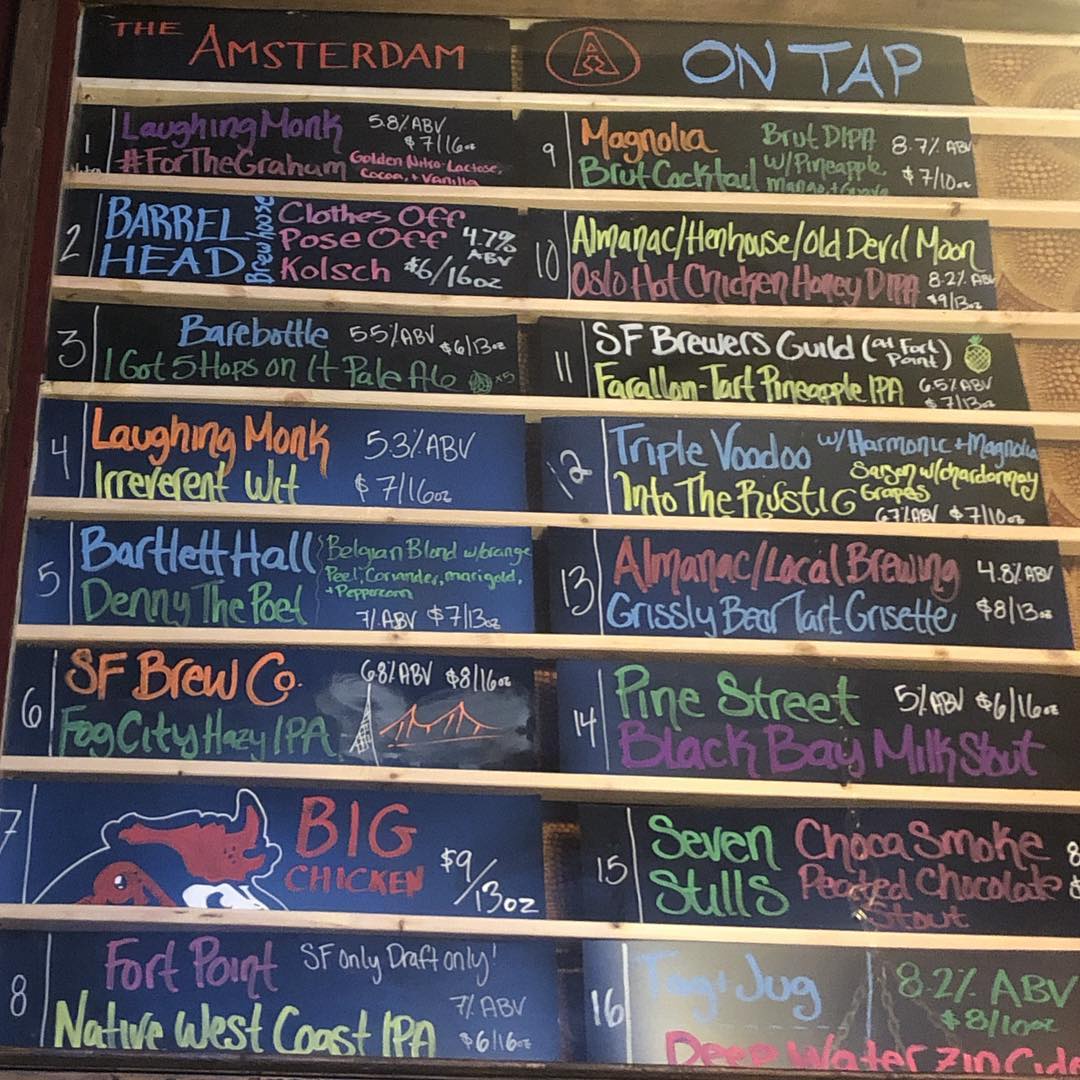 THE AMSTERDAM
ON TAP
1
Laughing Monk 5.8% ABV
$7/16oz
#ForTheGraham Golden Nitro-Lactose,
Cocoa, + Vanilla
2
BARREL HEAD Brewhouse
Clothes Off
Pose Off 4.7% ABV
Kolsch $6/16oz
3
Barebottle 5.5% ABV $6/13oz
I Got 5 Hops on It Pale Ale x5
4
Laughing Monk 5.3% ABV
Irreverent Wit $7/16oz
5
Bartlett Hall Belgian Blond w/orange
Peel, Coriander, marigold,
+ Peppercorn
Denny The Poet 7% ABV $7/13oz
6
SF Brew Co. 6.8% ABV $8/16oz
Fog City Hazy IPA
7
BIG
CHICKEN $9/13oz
8
Fort Point SF only Draft only!
7% ABV
Native West Coast IPA $6/16oz
9
Magnolia Brut DIPA 8.7% ABV
Brut Cocktail w/Pineapple, $7/10oz
Mango, + Guava
10
Almanac/Henhouse/Old Devil Moon
Oslo Hot Chicken Honey DIPA 8.2% ABV
$9/13oz
11
SF Brewers Guild (at Fort Point)
Farallon-Tart Pineapple IPA 6.5% ABV
$7/13oz
12
Triple Voodoo w/Harmonic + Magnolia
Saison w/chardonnay
Into The Rustic Grapes
6.7% ABV $7/10oz
13
Almanac/Local Brewing 4.8% ABV
Grissly Bear Tart Grisette $8/13oz
14
Pine Street 5% ABV $6/16oz
Black Bay Milk Stout
15
Seven Choca Smoke
Stills Peated Chocolate
Stout
16
Tag+Jug 8.2% ABV
$8/10oz
Deep Water Zin Cide